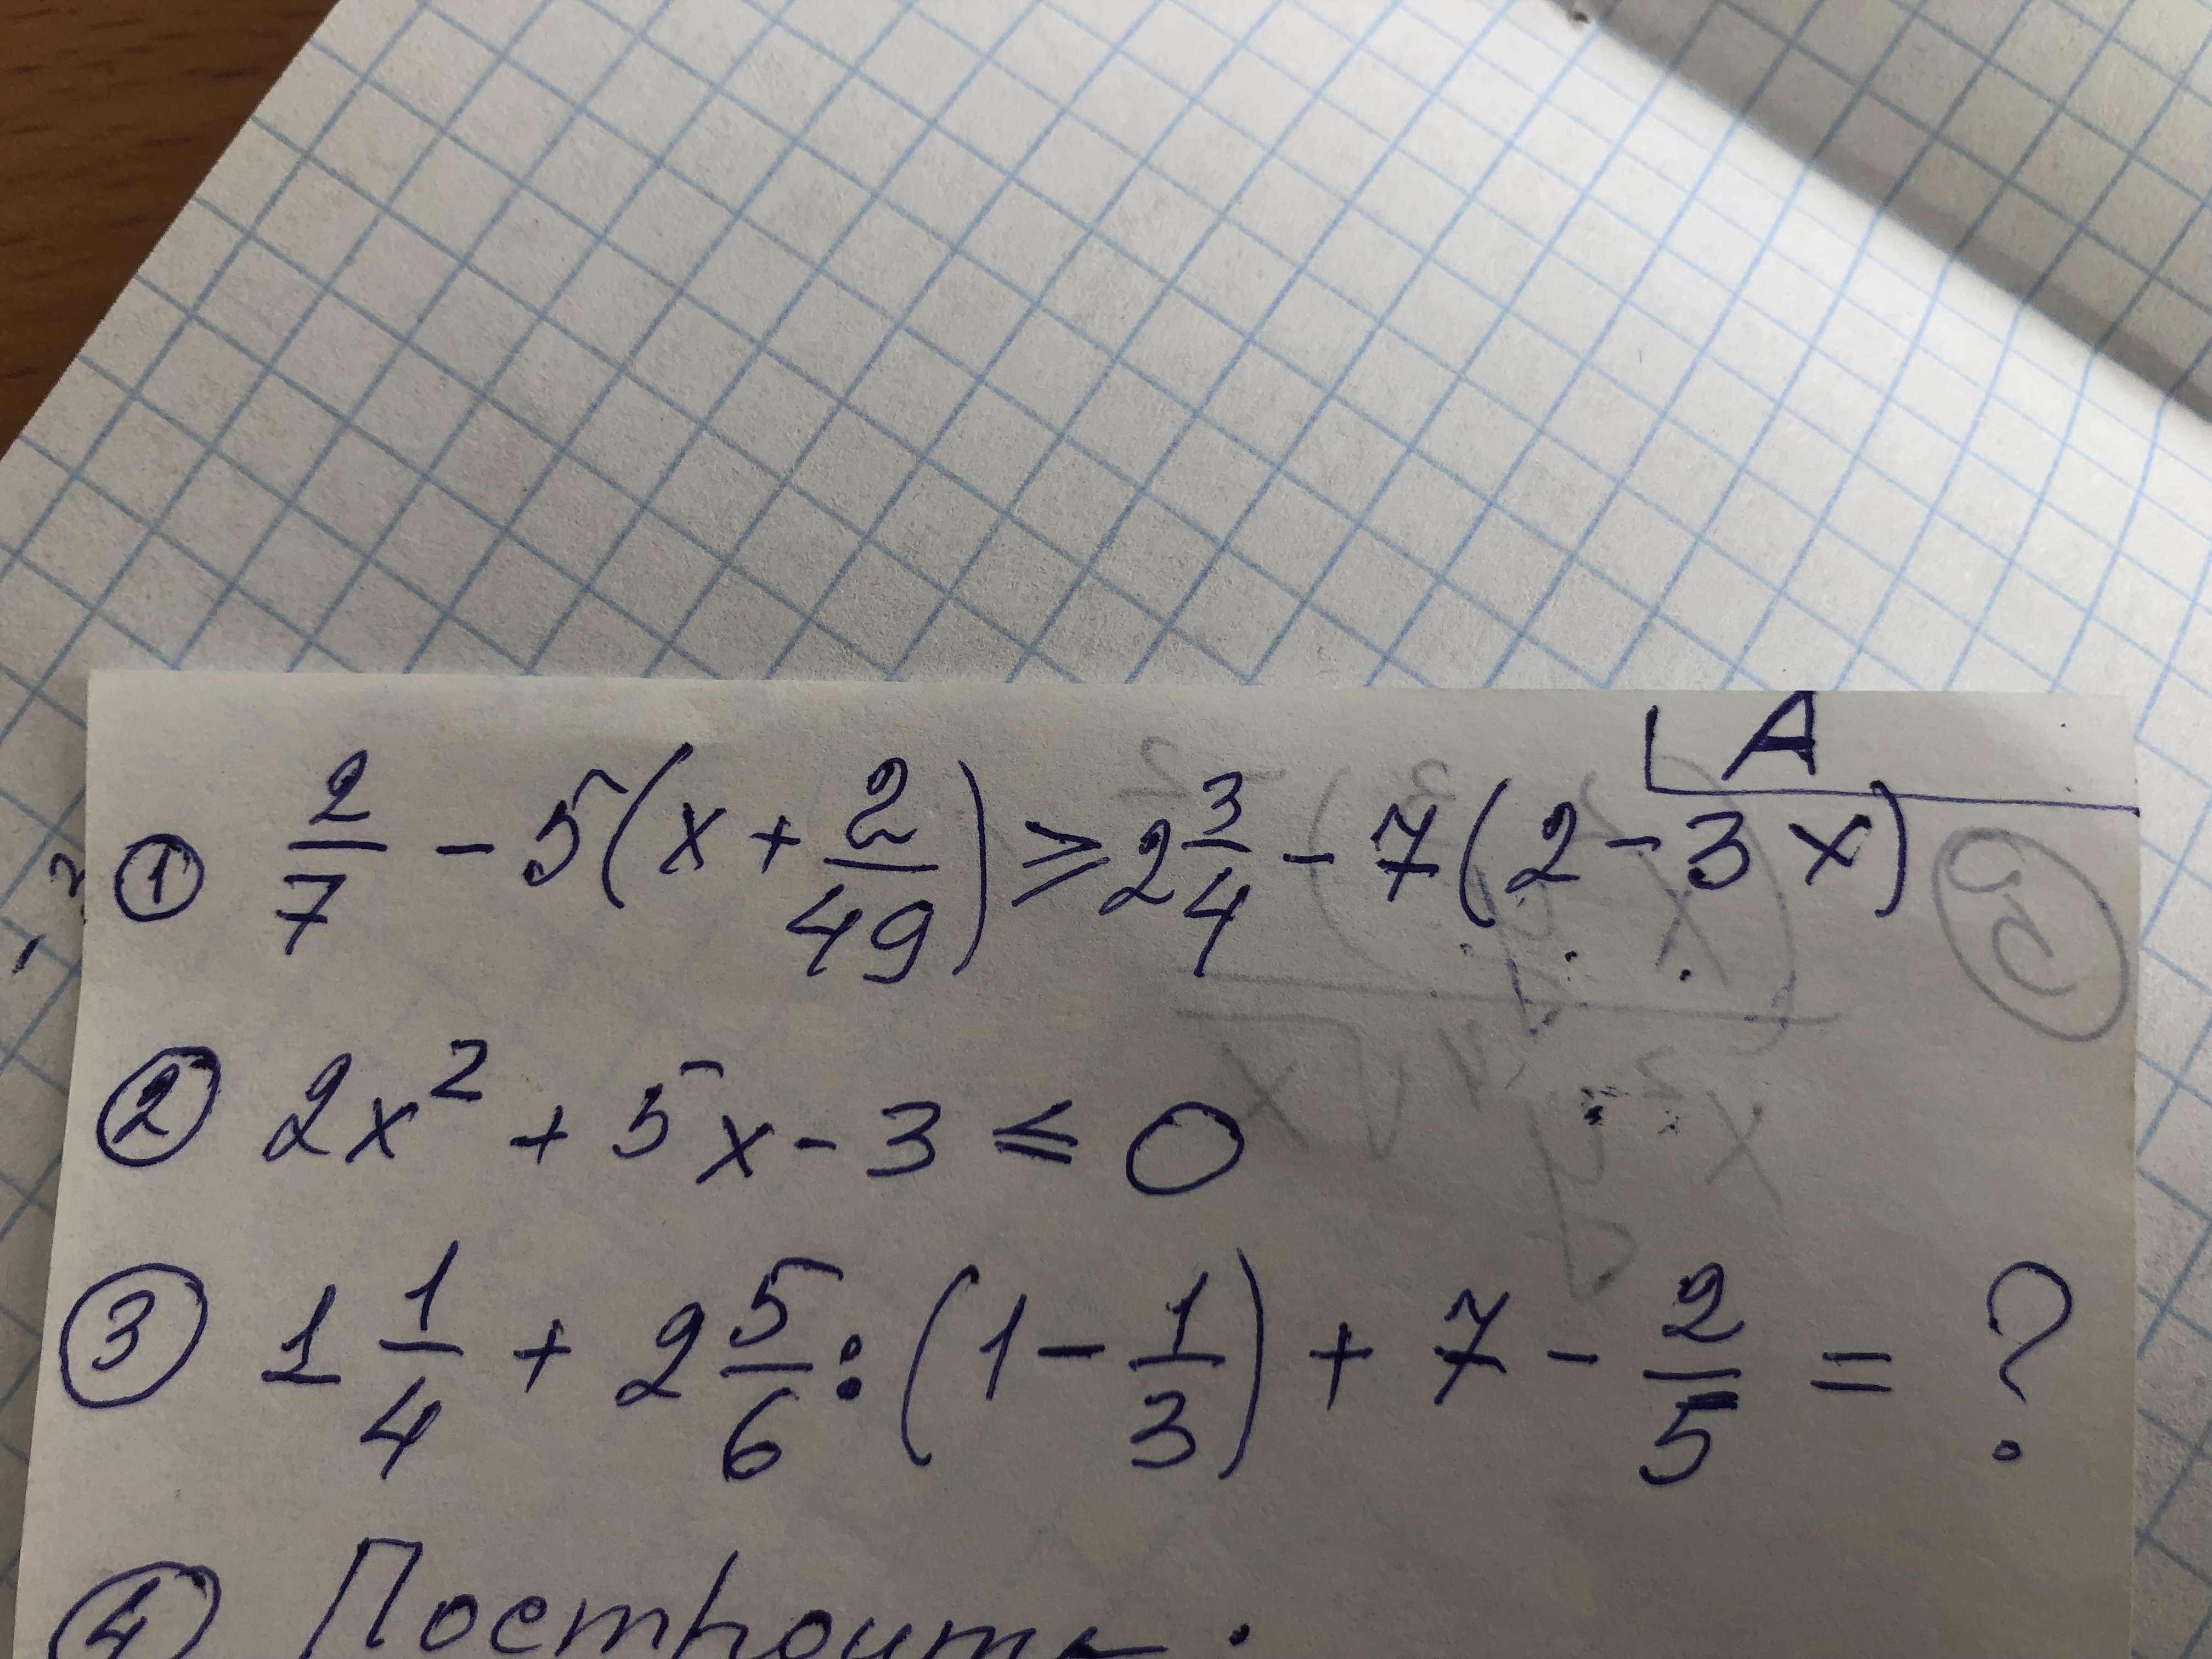 A
① 2/7 - 5(x + 2/49) ⩾ 2 3/4 - 7(2 - 3x)
② 2x² + 5x - 3 ⩽ 0
③ 1 1/4 + 2 5/6 : (1 - 1/3) + 7 - 2/5 = ?
④ Построить: